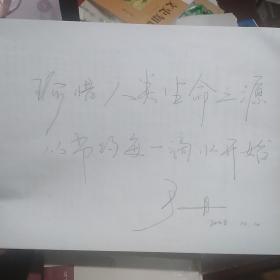 珍惜人类生命之源
从节约每一滴水开始
2008 10.10
文史知识